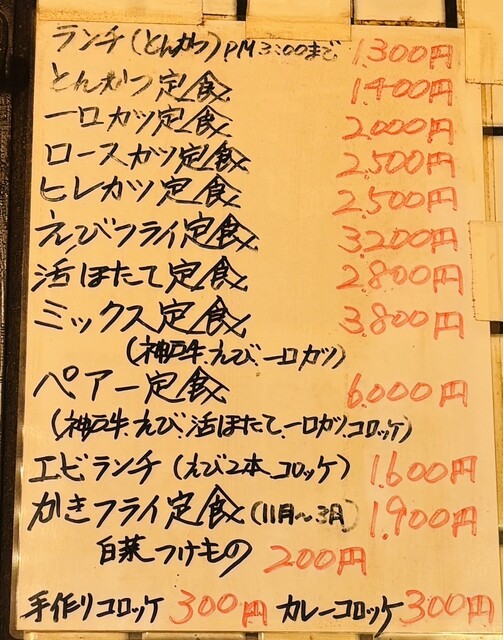 ランチ(とんかつ)PM3:00まで 1.300円
とんかつ定食 1.400円
一口カツ定食 2.000円
ロースカツ定食 2.500円
ヒレカツ定食 2.500円
えびフライ定食 3.200円
活ほたて定食 2.800円
ミックス定食 3.800円
(神戸牛.えび.一口カツ)
ペアー定食 6.000円
(神戸牛.えび.活ほたて.一口カツ.コロッケ)
エビランチ(えび2本.コロッケ) 1.600円
かきフライ定食(11月〜3月) 1.900円
白菜つけもの 200円
手作りコロッケ 300円 カレーコロッケ 300円